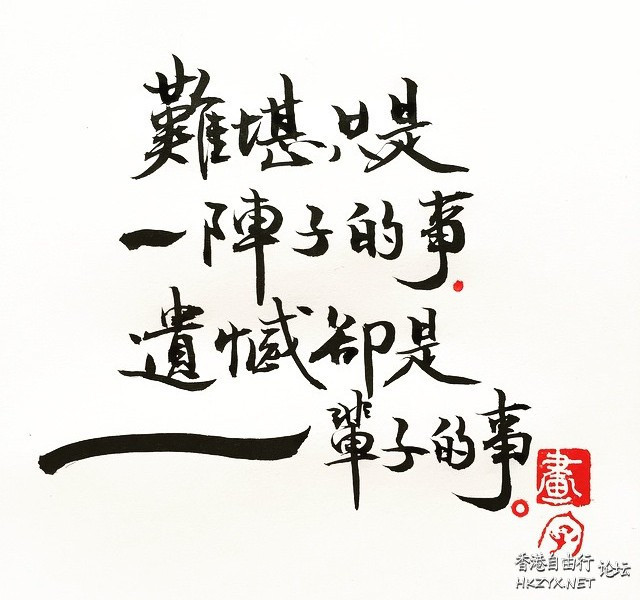 難堪,只是
一陣子的事.
遺憾卻是
一輩子的事。
畫字
香港自由行论坛
HKZYX.NET